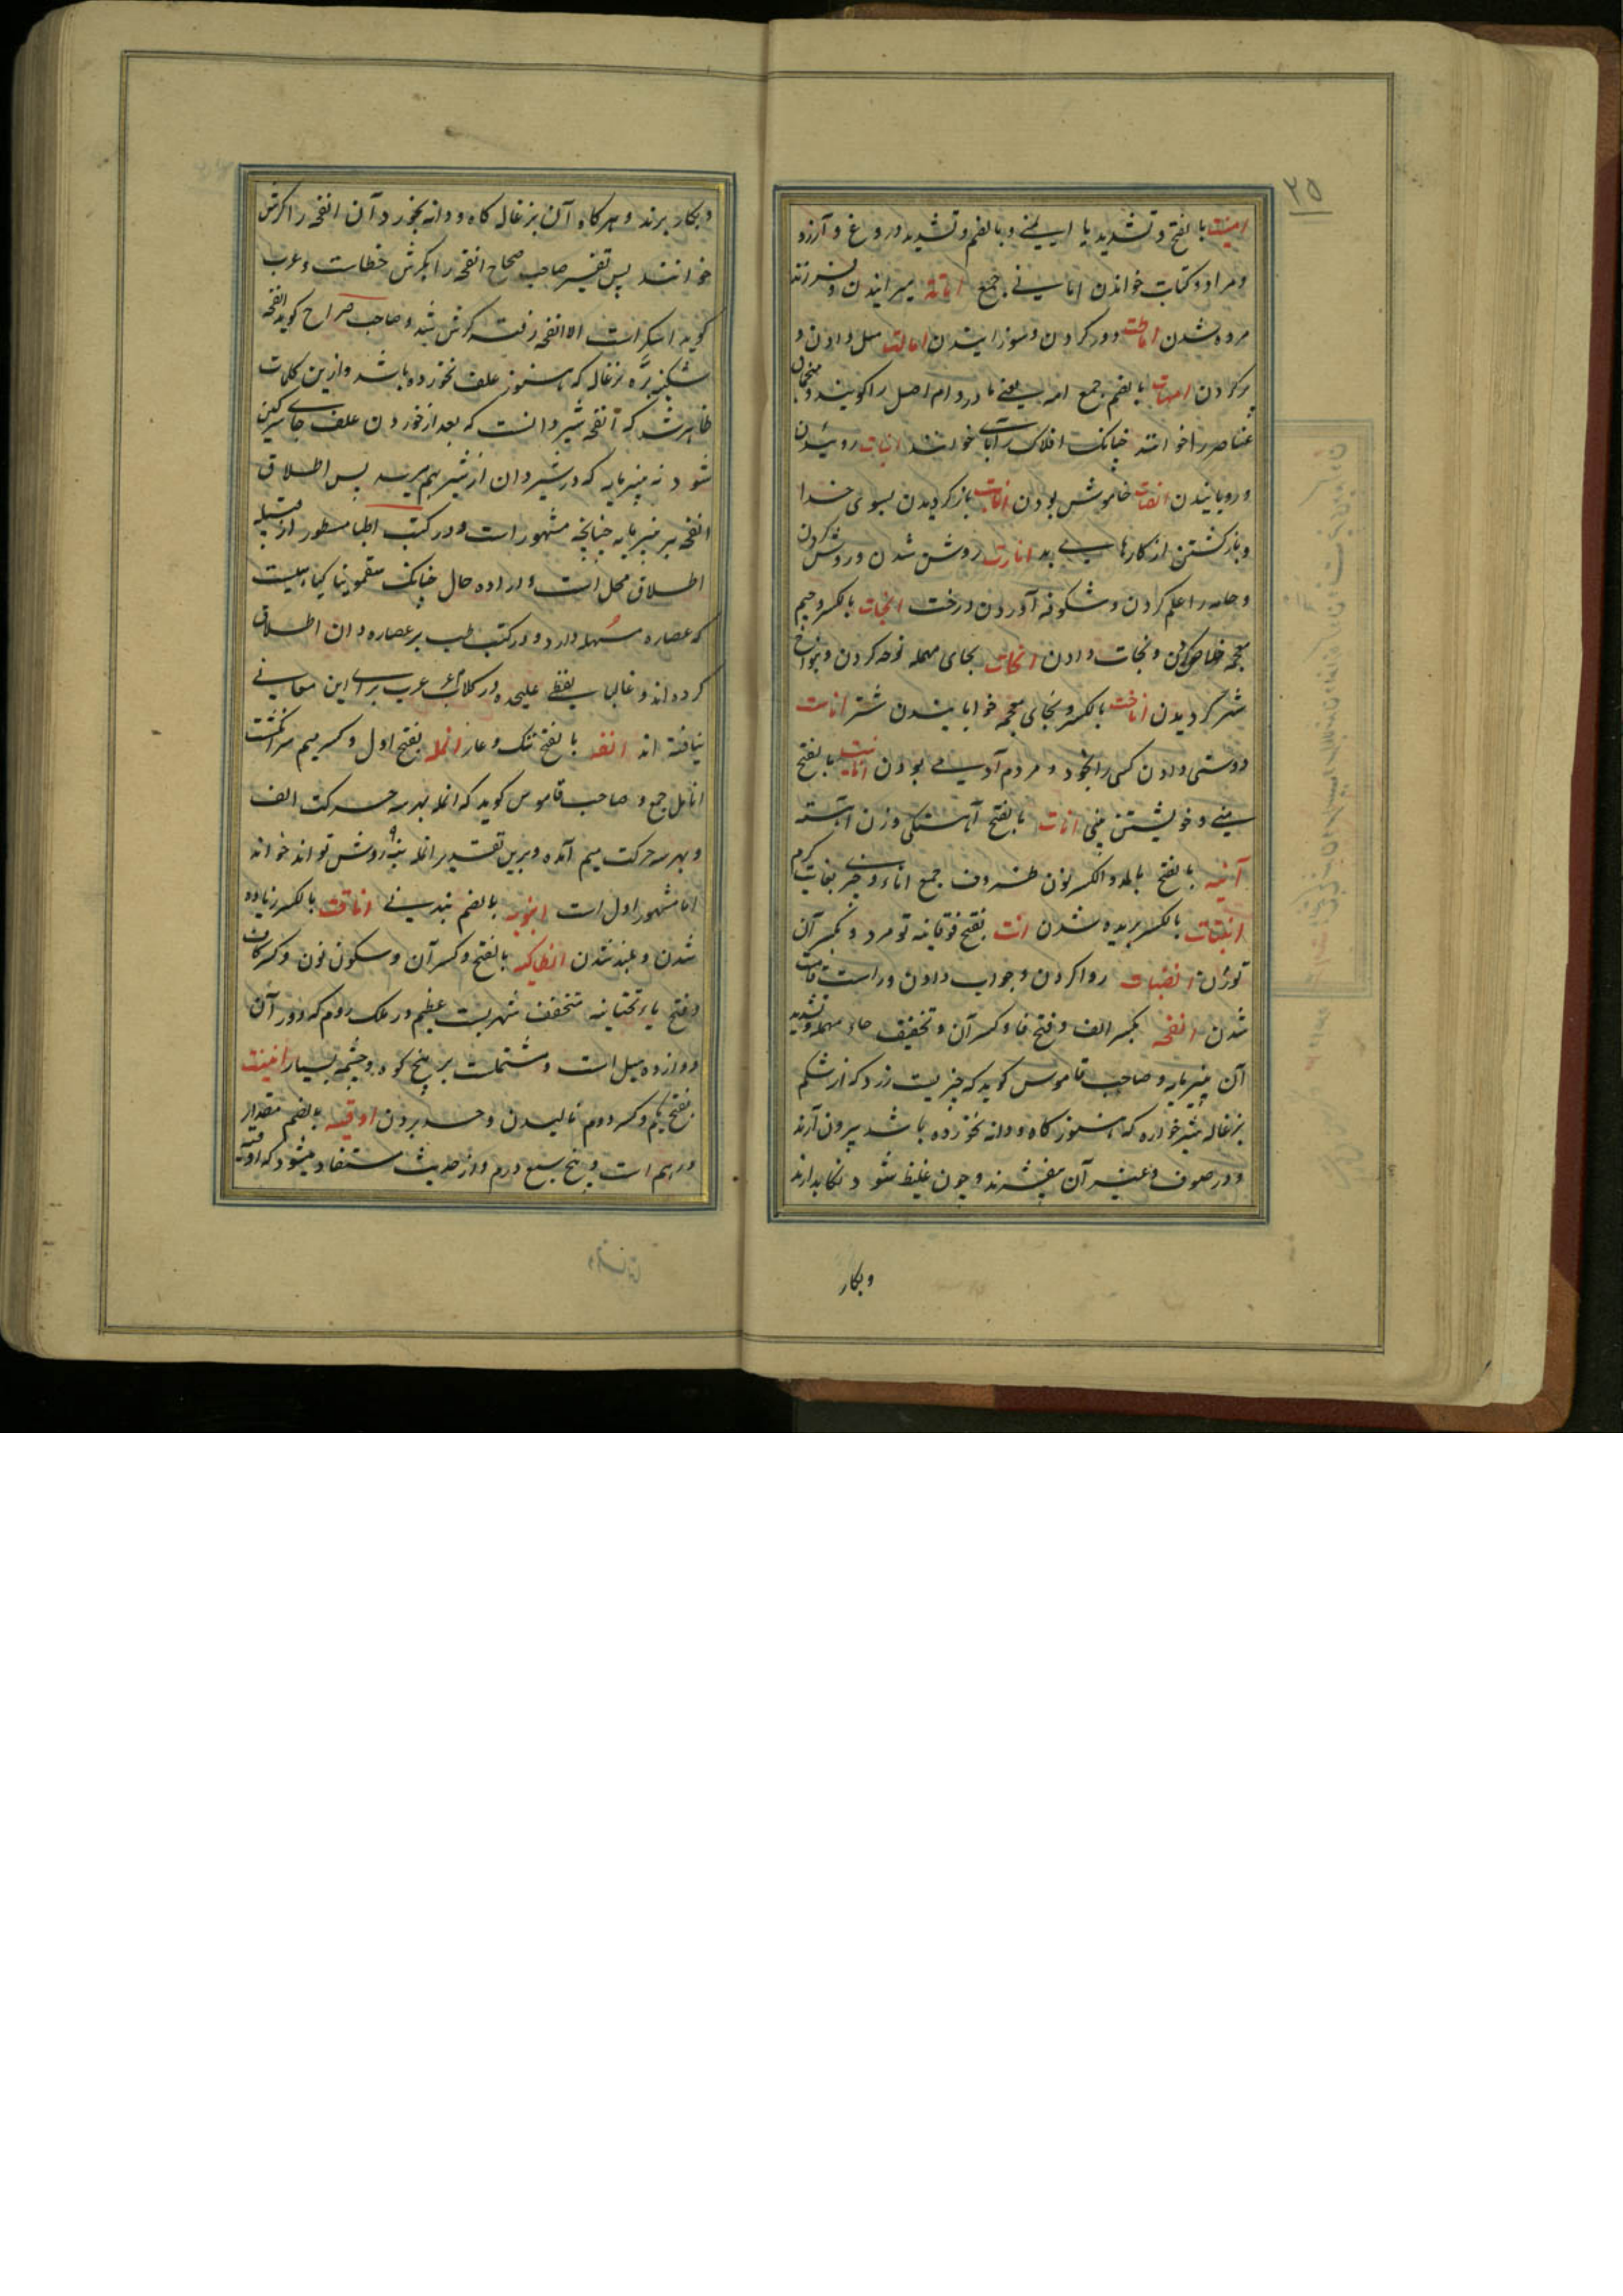 ۲۵
امنیت بالفتح و تشدید یا ایمنی و بالضم و تشدید دروغ و آرزو
و مراد و کتاب خواندن امانی جمع اماته میرانیدن و فرزند
مرده شدن اماطت دور کردن و دور انیدن امالت میل دادن و
برکردن امهات بالضم جمع امه یعنی مادر و ام اصل را کویند و منجمان
عناصر را خوانند چنانکه افلاک را آبای خوانند انبات رویئدن
و رویانیدن انصات خاموش بودن انابت باز کردیدن بسوی خدا
و باز کشتن از کارهای بد انارت روشن شدن و روشن کردن
و جامه را علم کردن و شکوفه آوردن درخت انجات بالکسر و جیم
معجمه خلاص کردن و نجات دادن انحات بحای مهمله نوحه کردن و
شتر کردیدن اناخت بالکسر و بخای معجمه خوابانیدن شتر اناست
دوستی دادن کسی را بخود و مردم آدمی بودن انانیت بالفتح
منی و خویشتن بینی انات بالفتح آهستکی و زن آهسته
آنیه بالفتح بالمد و الکسر نون ظروف جمع اناء و چیزی بغایت کرم
انبتات بالکسر بریده شدن انت بفتح فوقانیه تو مرد و بکسر آن
تو زن انصبات روا کردن و جواب دادن و راست قامت
شدن انفحه بکسر الف و فتح فا و کسر آن و تخفیف حاء مهمله و تشدید
آن پنیر مایه و صاحب قاموس کوید که چیزیست زرد که از شکم
بزغاله شیر خواره که هنوز کاه و دانه نخورده باشد بیرون آرند
و در صوف و غیر آن میفشرند و چون غلیظ شود نکاهدارند
وبکار
و بکار برند و هرکاه آن بزغاله کاه و دانه بخورد آن انفحه را کرش
خوانند پس تفسیر صاحب صحاح انفحه را بکرش خطاست و عرب
کوید استکراست الانفحه رفت کرش شد و صاحب صراح کوید انفحه
شکنبه بره بزغاله که هنوز علف نخورده باشد و ازین کلمات
ظاهر شد که انفحه شیردانست که بعد از خوردن علف جای سرکین
شود نه پنیر مایه که در شیردان از شیر بهم رسد پس اطلاق
انفحه بر پنیر مایه چنانچه مشهور است و در کتب اطبا مسطور از قبیله
اطلاق محل است و اراده حال چنانکه سقمونیا کیاهیست
که عصاره مسهله دارد و در کتب طب بر عصاره و ان اطلاق
کرده اند و غالبا لفظی علیحده در کلام عرب برای این معانی
نیافته اند انفه بالفتح ننک و عار انمله بفتح اول و کسر میم سر انکشت
انامل جمع و صاحب قاموس کوید که انمله بهر سه حرکت الف
و بهر سه حرکت میم آمده و برین تقدیر انمله بنه ۹ روش تواند خواند
اما مشهور اول است انبوبه بالضم بندنی انافت بالکسر زیاده
شدن و بلند شدن انطاکیه بالفتح و کسر آن و سکون نون و کسر کاف
و فتح یاء تحتانیه متخفف شهریست عظیم در ملک روم که دور آن
دوازده میل است و مشتملست بر پنج کوه و چشمه بسیار انینت
بفتح یکم و کسر دوم نالیدن و حسد بردن اوقیه بالضم مقدار
درهم است و پنج سبع درم و از حدیث مستفاد میشود که اوقیه